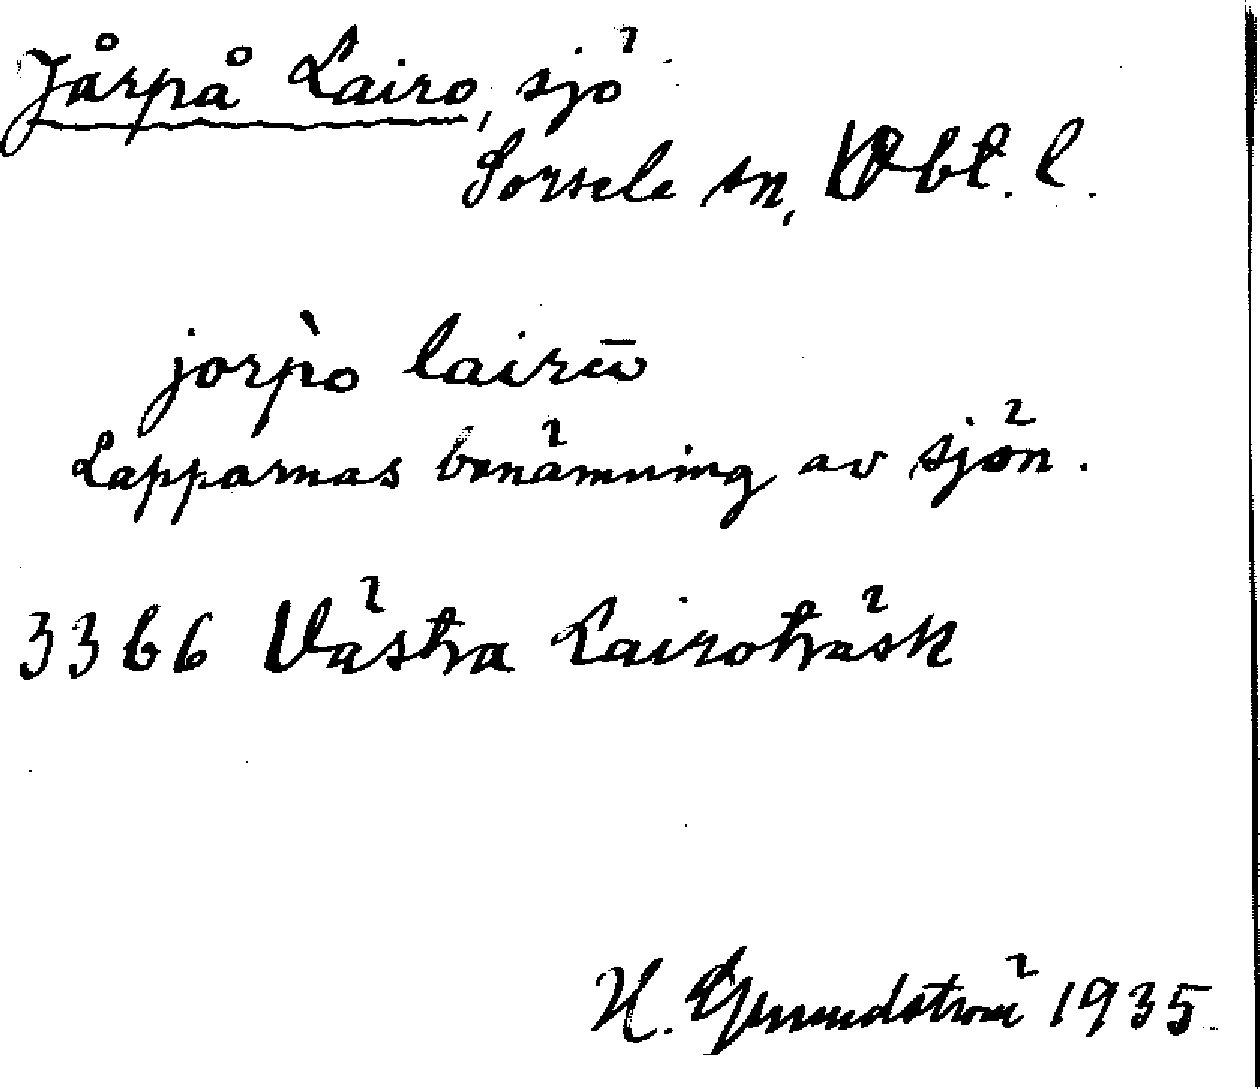 Jårpå Lairo, sjö
Sorsele sn, Vbt. l.
jorpò lairū
Lapparnas benämning av sjön.
3366 Västra Lairoträsk
H. Grundström 1935